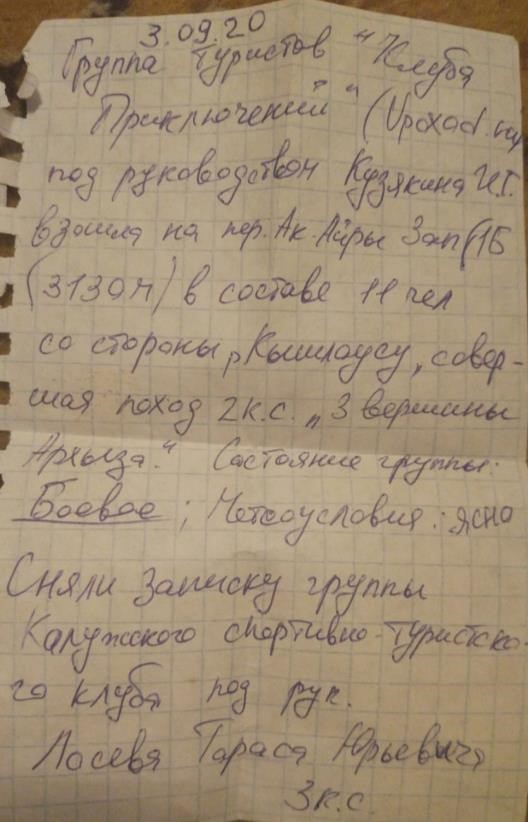 3.09.20
Группа туристов "Клуба
Приключений" (Vpoxod.ru
под руководством Кузякина И.Г.
взошла на пер. Ак-Айры Зап (1Б
(3130м) в составе 11 чел
со стороны р. Кышлаусу, совер-
шая поход 2к.с. „3 вершины
Архыза." Состояние группы:
Боевое; Метеоусловия: ясно
Сняли записку группы
Калужского спортивно-туристско-
го клуба под рук.
Лосева Тараса Юрьевича
3к.с.